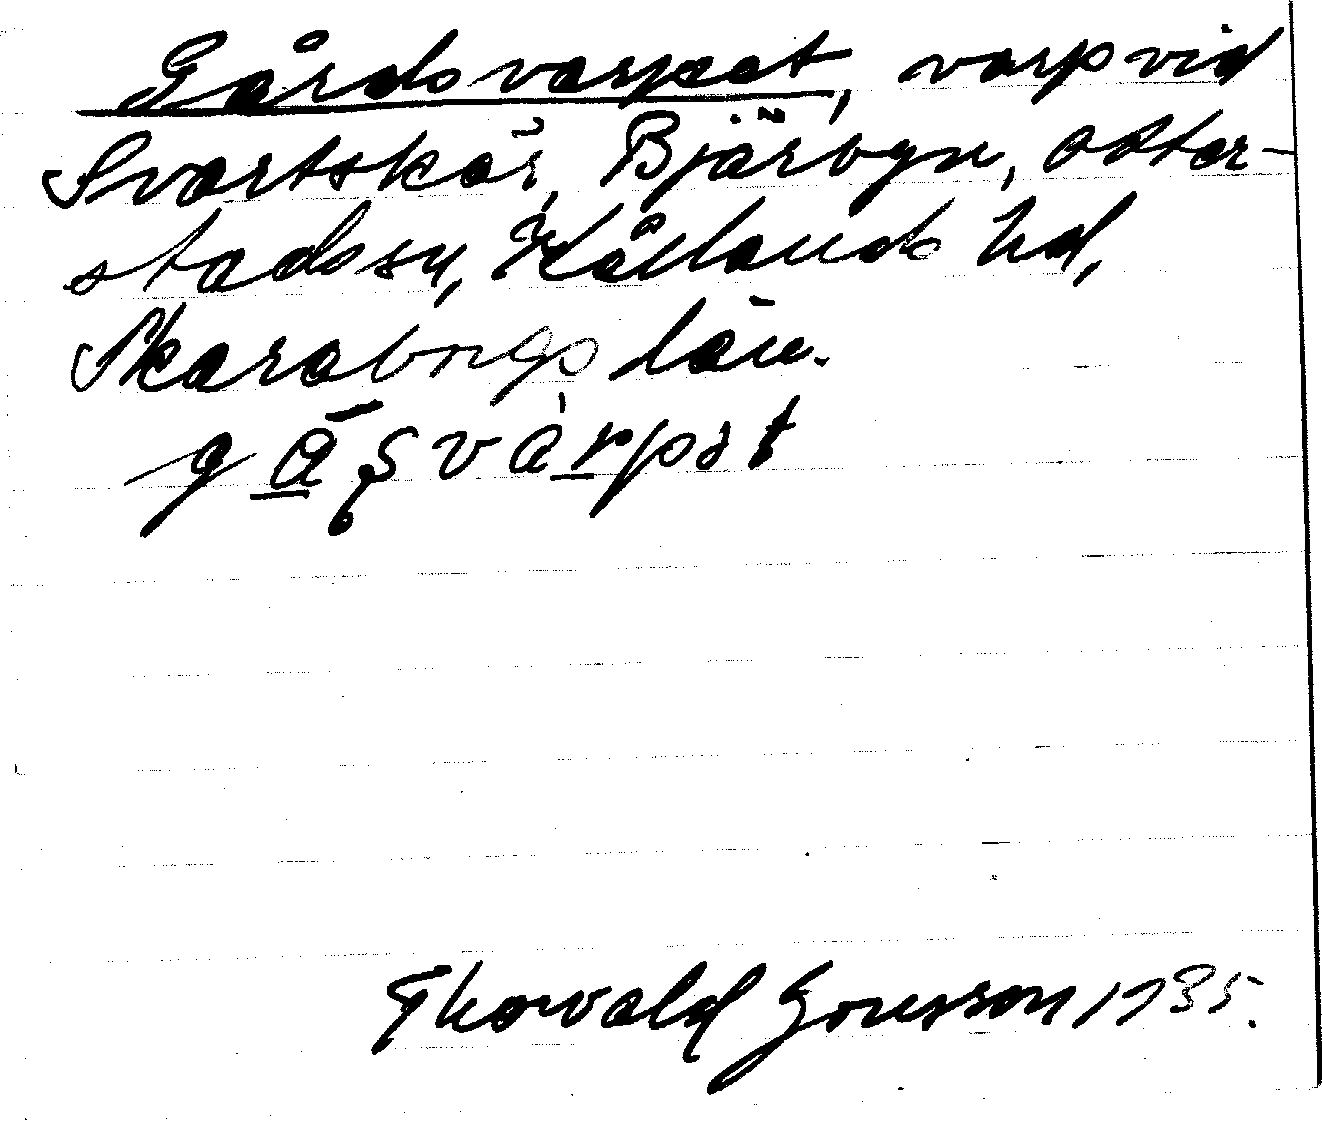 Gårdsvarpet, varp vid
Svartskär, Bjärbyn, Otter-
stads sn, Kållands hd,
Skaraborgs län.
Thorvald Gonsson 1935.